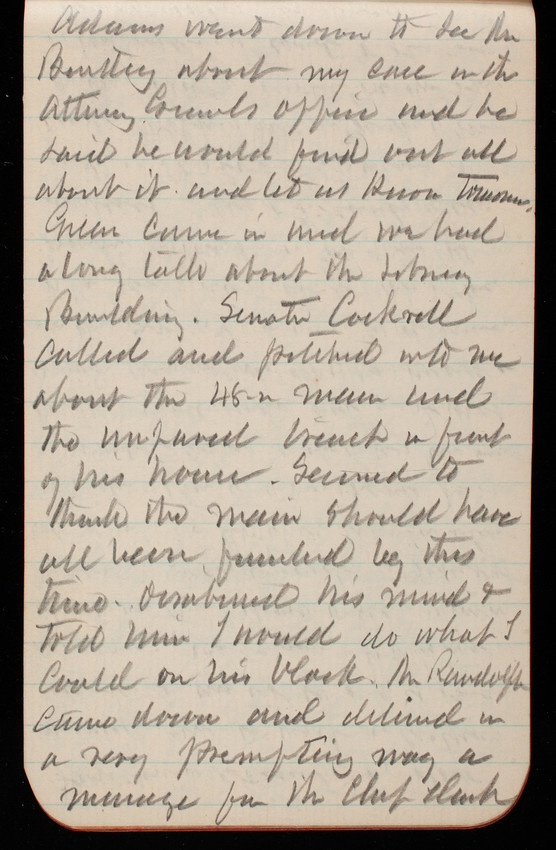 Adams went down to see Mr
Bentley about my case in the
Attorney Generals office and he
said he would find out all
about it and let us know tomorrow.
Green came in and we had
a long talk about the Library
Building. Senator Cockrell
called and pitched into me
about the 48 in main and
the unpaved trench in front
of his house. Seemed to
think the main should have
all been finished by this
time. Disabused his mind &
told him I would do what I
could on his block. Mr Randolph
came down and delivered in
a very peremptory way a
message from the Chief Clerk